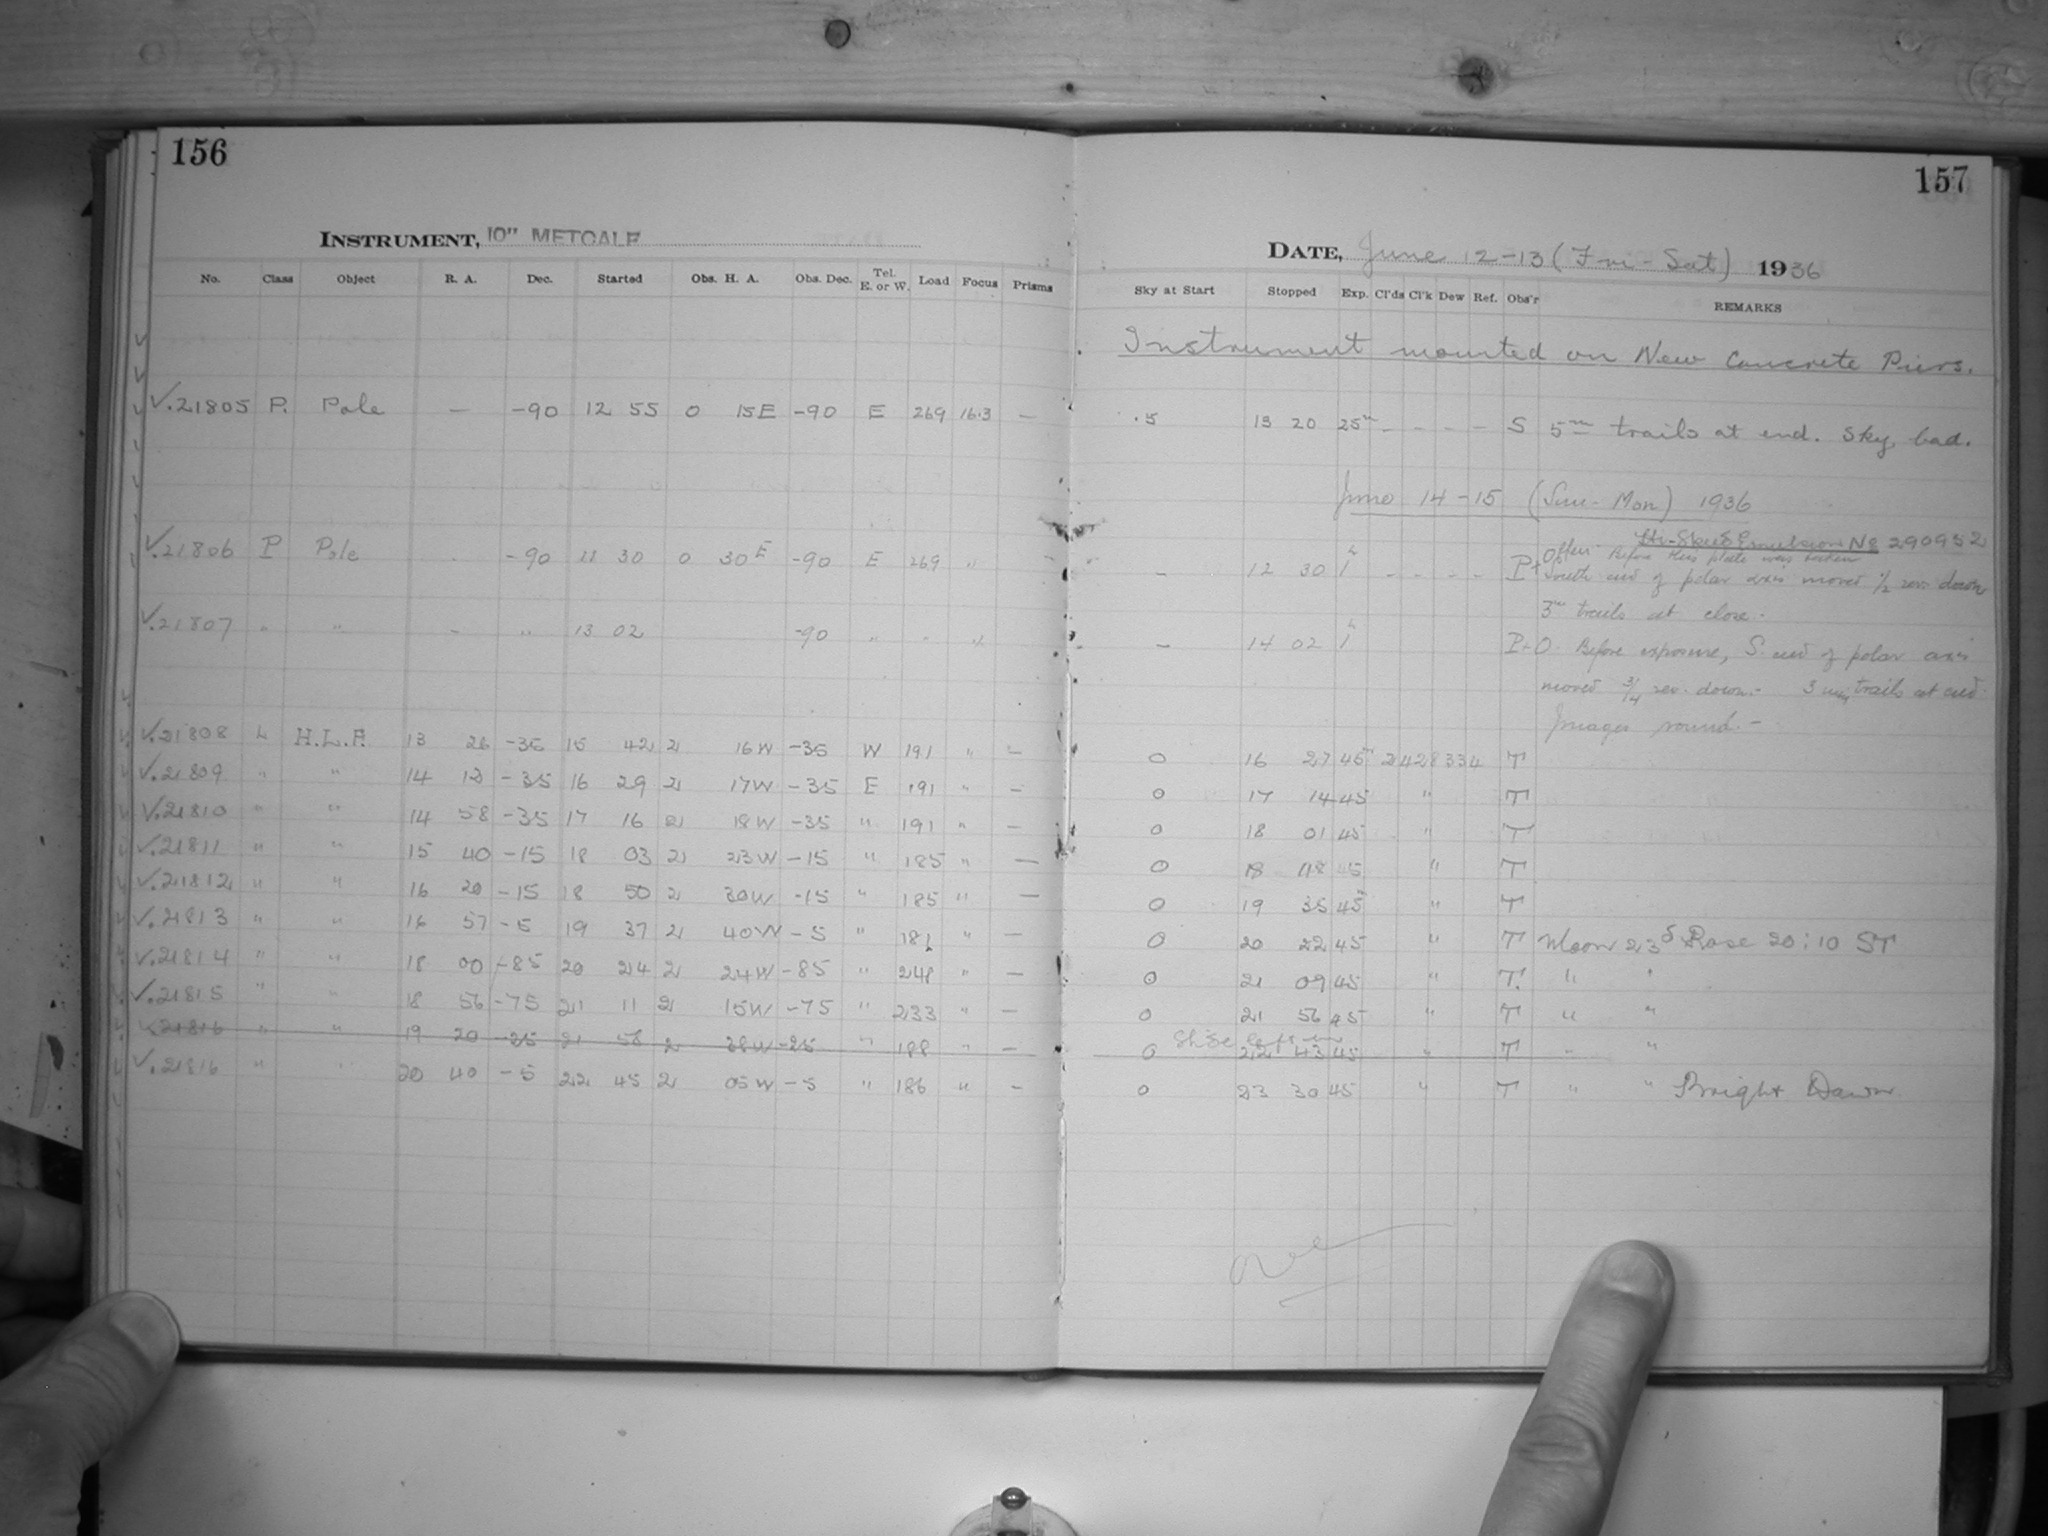 156
INSTRUMENT, 10" METCALF
No. Class Object R. A. Dec. Started Obs. H. A. Obs. Dec. Tel. E. or W. Load Focus Prisms
V.21805 P. Pole — -90 12 55 0 15E -90 E 269 16.3 —
V.21806 P Pole - -90 11 30 0 30E -90 E 269 "
V.21807 " " - " 13 02 -90 " " "
V.21808 L H.L.F. 13 26 -35 15 42 2 16W -35 W 191 " —
V.21809 " " 14 12 -35 16 29 2 17W -35 E 191 " —
V.21810 " " 14 58 -35 17 16 2 18W -35 " 191 " —
V.21811 " " 15 40 -15 18 03 2 23W -15 " 185 " —
V.21812 " " 16 20 -15 18 50 2 30W -15 " 185 " —
V.21813 " " 16 57 -5 19 37 2 40W -5 " 181 " —
V.21814 " " 18 00 -85 20 24 2 24W -85 " 248 " —
V.21815 " " 18 56 -75 21 11 2 15W -75 " 233 " —
V.21816 " " 19 20 -25 21 58 2 38W -25 " 188 " —
V.21816 " " 20 40 -5 22 45 2 05W -5 " 186 " —
157
DATE, June 12-13 (Fri-Sat) 1936
Sky at Start Stopped Exp. Cl'ds Cl'k Dew Ref. Obs'r REMARKS
Instrument mounted on New Concrete Piers.
.5 13 20 25m - - - - S 5m trails at end. Sky bad.
June 14-15 (Sun-Mon) 1936
Emulsion No 290952
Before this plate was taken
— 12 30 1h - - - - P+O South end of polar axis moved 1/2 rev. down
3m trails at close.
— 14 02 1h P+O. Before exposure, S. end of polar axis
moved 3/4 rev. down. - 3 min trails at end.
Images round. -
0 16 27 45m 2428334 T
0 17 14 45 " T
0 18 01 45 " T
0 18 48 45 " T
0 19 35 45 " T
0 20 22 45 " T Moon 23d Rose 20:10 ST
0 21 09 45 " T. " "
0 21 56 45 " T " "
0 22 43 45 " T " "
0 23 30 45 " T " " Bright Dawn.